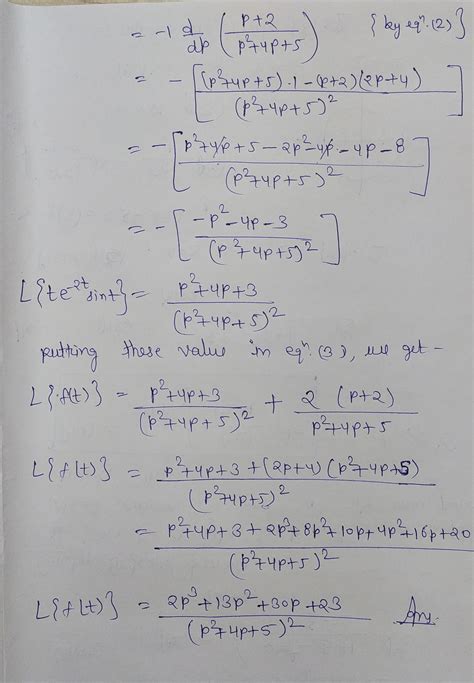 = -1 d/dp ( p+2 / p²+4p+5 ) { by eqn. (2) }
= - [ (p²+4p+5)·1 - (p+2)(2p+4) / (p²+4p+5)² ]
= - [ p²+4p+5 - 2p²-4p-4p-8 / (p²+4p+5)² ]
= - [ -p²-4p-3 / (p²+4p+5)² ]
L{te^-2t sint} = p²+4p+3 / (p²+4p+5)²
putting these value in eqn. (3), we get -
L{f(t)} = p²+4p+3 / (p²+4p+5)² + 2 (p+2) / p²+4p+5
L{f(t)} = p²+4p+3 + (2p+4) (p²+4p+5) / (p²+4p+5)²
= p²+4p+3+2p³+8p²+10p+4p²+16p+20 / (p²+4p+5)²
L{f(t)} = 2p³+13p²+30p+23 / (p²+4p+5)² Ans.